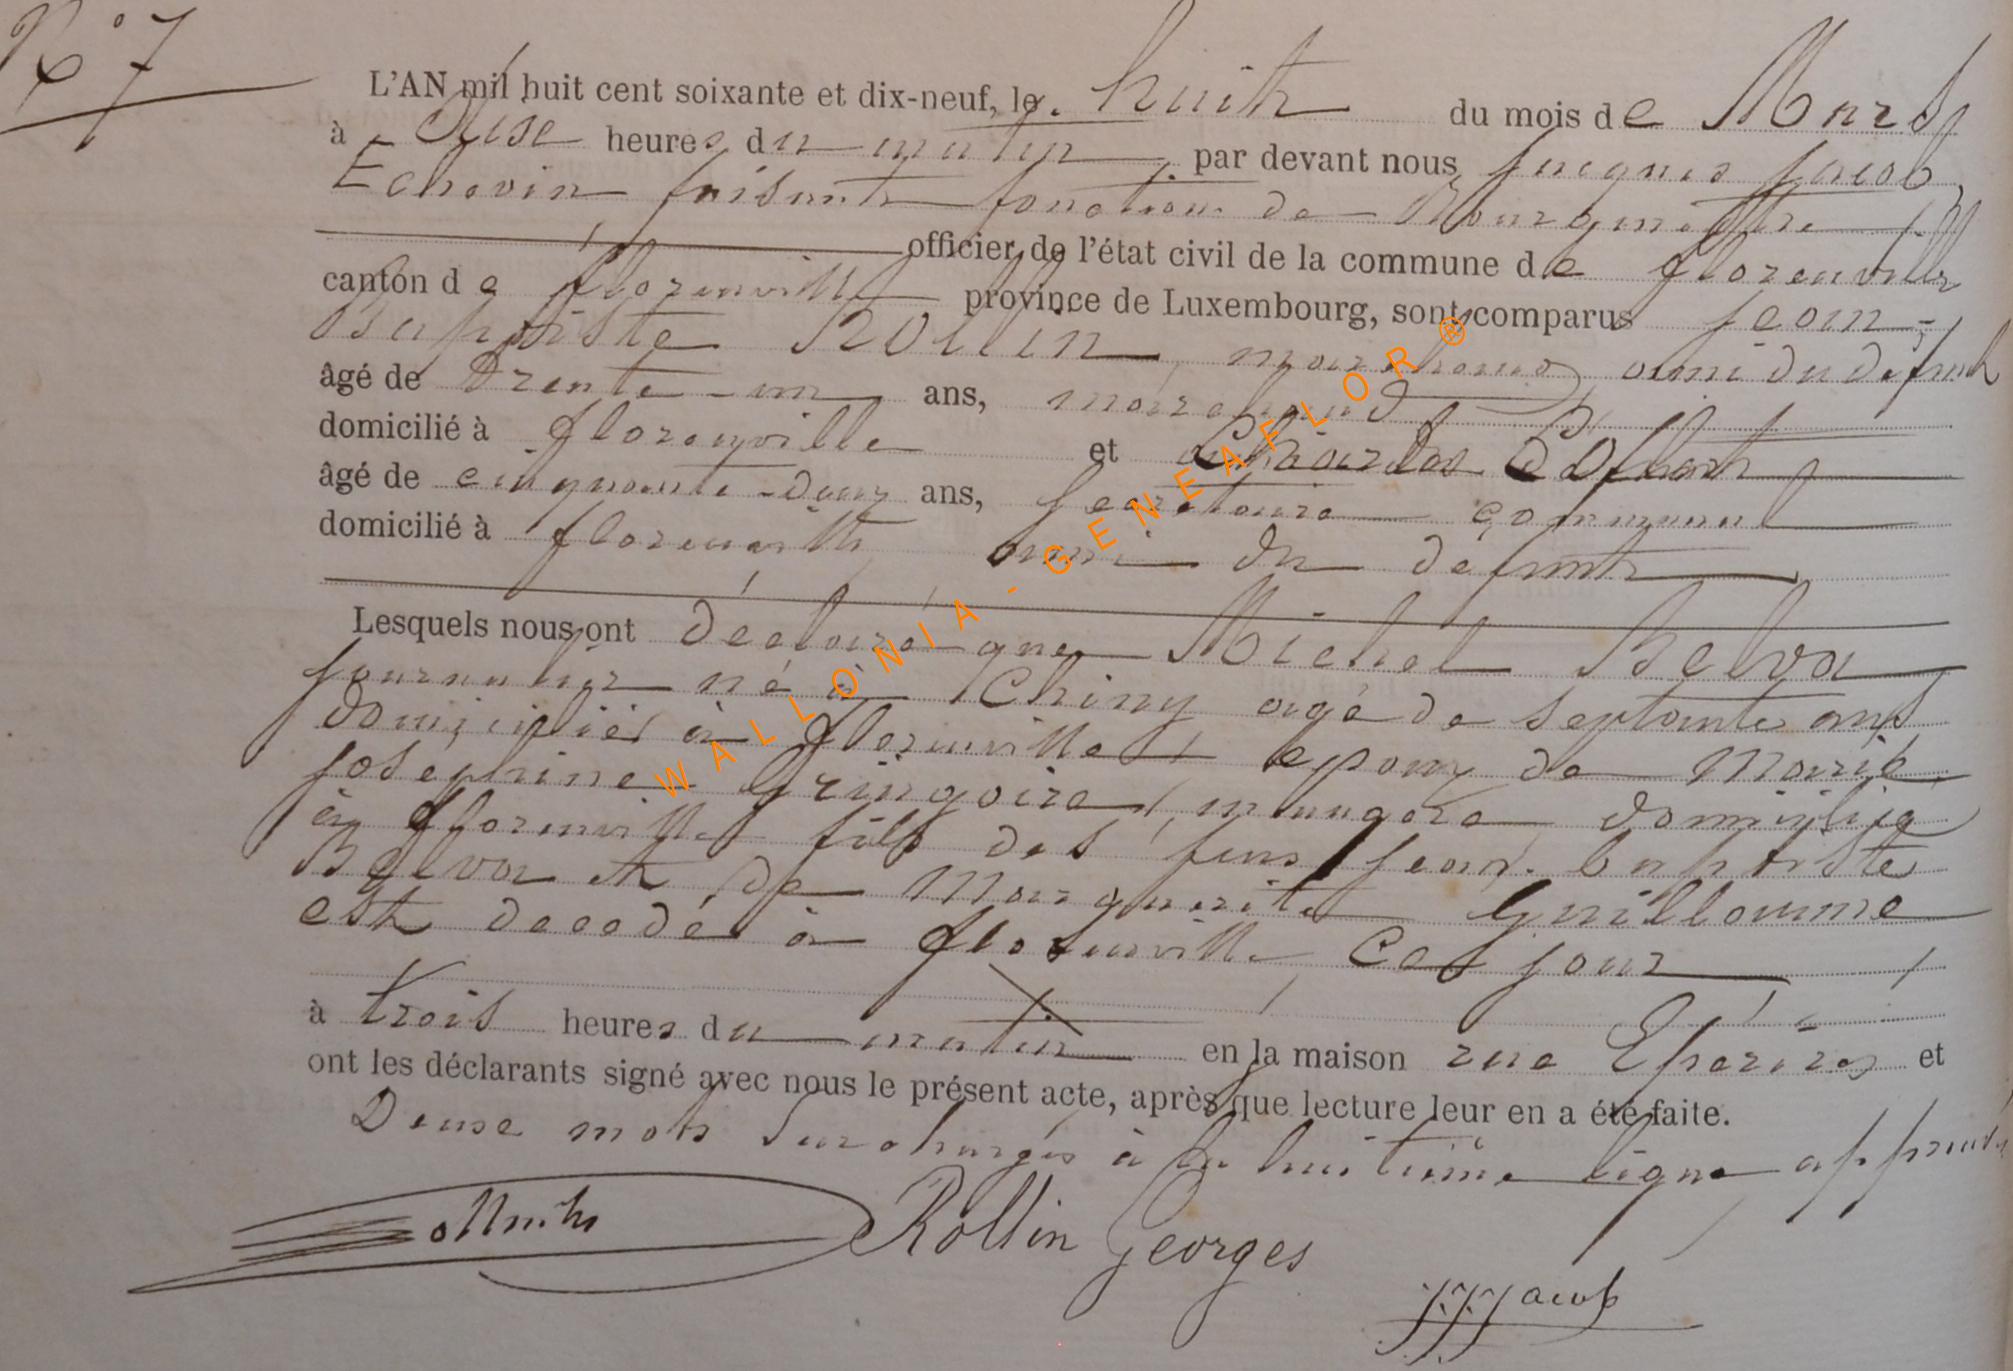 N° 7
L'AN mil huit cent soixante et dix-neuf, le huit du mois de Mars
à heures du matin, par devant nous Jacques Jacob,
Echevin faisant fonctions de Bourgmestre
officier de l'état civil de la commune de Florenville
canton de Florenville province de Luxembourg, sont comparus Jean-
Baptiste Rollin, marchand, ami du défunt
âgé de Trente-un ans, marchand
domicilié à Florenville et Charles
âgé de cinquante-deux ans, secrétaire communal
domicilié à Florenville ami du défunt
Lesquels nous ont déclaré que Michel Belva
journalier né à Chiny agé de septante ans
domicilié à Florenville époux de Marie
Joséphine Gringoire, ménagère domiciliée
à Florenville fils des feus Jean-baptiste
Belva et de Marguerite Guillaume
est décédé à Florenville, ce jour
à trois heures du matin en la maison rue et
ont les déclarants signé avec nous le présent acte, après que lecture leur en a été faite.
mots surchargés à la huitième ligne approuvés
Rollin Georges
JJJacob
WALLONIA-GENEAFLOR ®